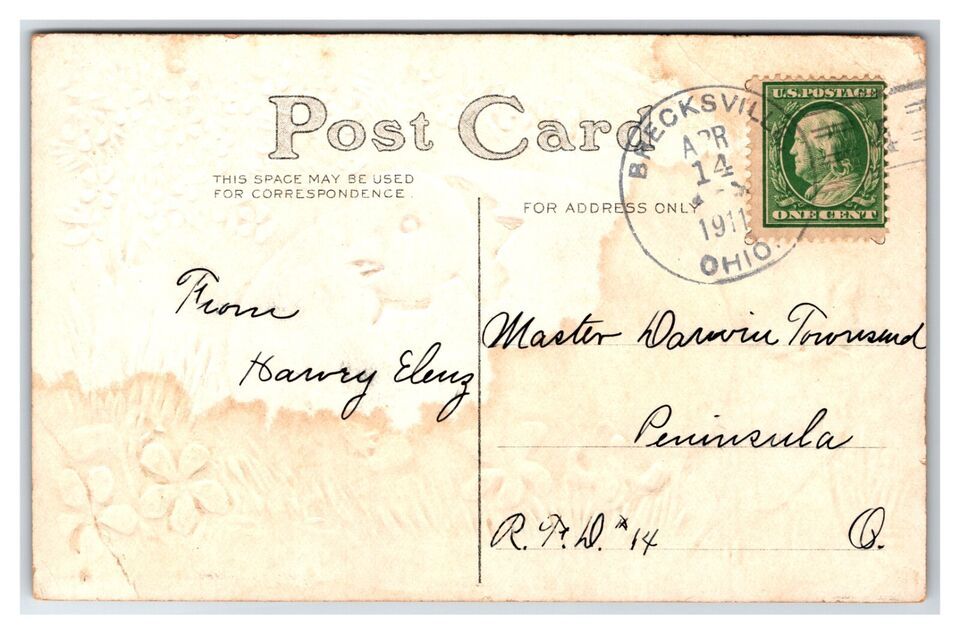 Post Card
THIS SPACE MAY BE USED
FOR CORRESPONDENCE.
FOR ADDRESS ONLY
BRECKSVILL
APR
14
1911
OHIO.
U.S. POSTAGE
ONE CENT
From
Harvey Elenz
Master Darwin Townsend
Peninsula
R.F.D. # 14 O.